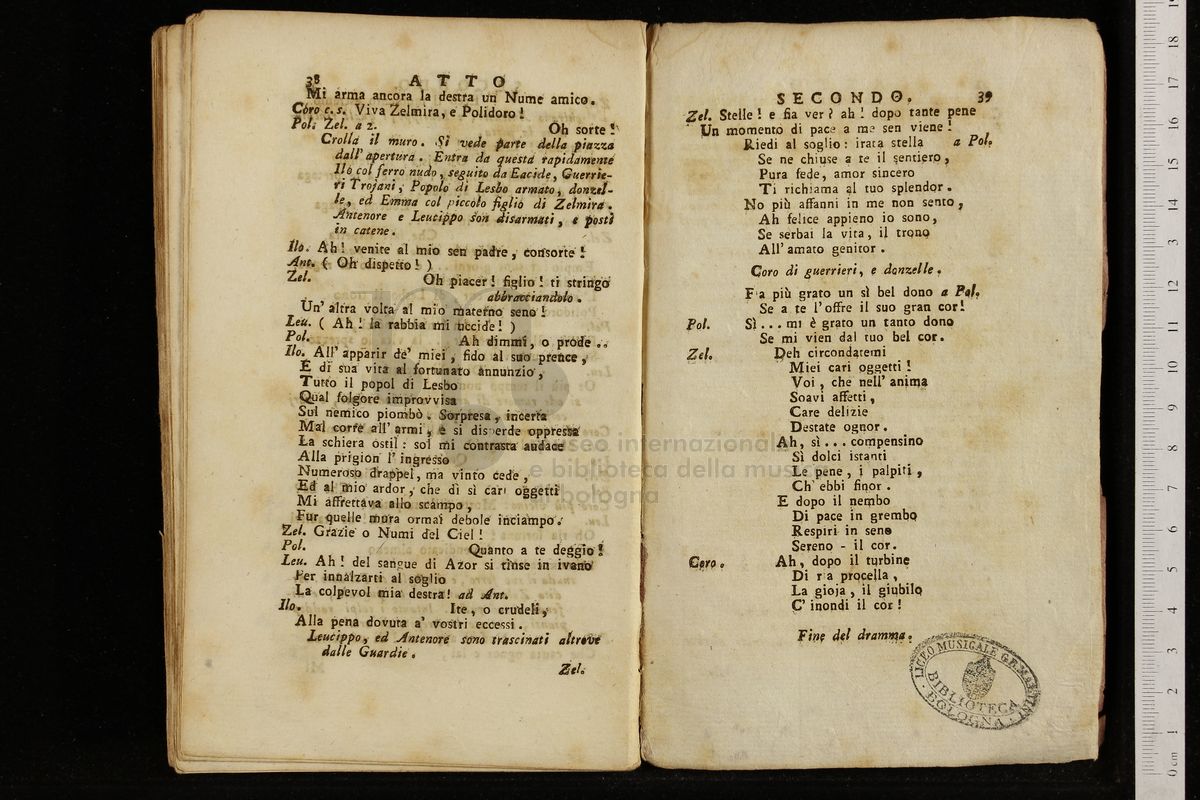 38 ATTO
Mi arma ancora la destra un Nume amico.
Coro c. s. Viva Zelmira, e Polidoro!
Pol. Zel. a 2. Oh sorte!
Crolla il muro. Si vede parte della piazza
dall' apertura. Entra da questa rapidamente
Ilo col ferro nudo, seguito da Eacide, Guerrie-
ri Trojani, Popolo di Lesbo armato, donzel-
le, ed Emma col piccolo figlio di Zelmira.
Antenore e Leucippo son disarmati, e posti
in catene.
Ilo. Ah! venite al mio sen padre, consorte!
Ant. ( Oh dispetto! )
Zel. Oh piacer! figlio! ti stringo
abbracciandolo.
Un' altra volta al mio materno seno!
Leu. ( Ah! la rabbia mi uccide! )
Pol. Ah dimmi, o prode ..
Ilo. All' apparir de' miei, fido al suo prence,
E di sua vita al fortunato annunzio,
Tutto il popol di Lesbo
Qual folgore improvvisa
Sul nemico piombò. Sorpresa, incerta
Mal corre all' armi, e si disperde oppressa
La schiera ostil: sol mi contrasta audace
Alla prigion l' ingresso
Numeroso drappel, ma vinto cede,
Ed al mio ardor, che di sì cari oggetti
Mi affrettava allo scampo,
Fur quelle mura ormai debole inciampo.
Zel. Grazie o Numi del Ciel!
Pol. Quanto a te deggio!
Leu. Ah! del sangue di Azor si tinse in ivano
Per innalzarti al soglio
La colpevol mia destra! ad Ant.
Ilo. Ite, o crudeli,
Alla pena dovuta a' vostri eccessi.
Leucippo, ed Antenore sono trascinati altrove
dalle Guardie.
Zel.
SECONDO. 39
Zel. Stelle! e fia ver? ah! dopo tante pene
Un momento di pace a me sen viene!
Riedi al soglio: irata stella a Pol.
Se ne chiuse a te il sentiero,
Pura fede, amor sincero
Ti richiama al tuo splendor.
No più affanni in me non sento,
Ah felice appieno io sono,
Se serbai la vita, il trono
All' amato genitor.
Coro di guerrieri, e donzelle.
Fia più grato un sì bel dono a Pol.
Se a te l' offre il suo gran cor!
Pol. Sì ... mi è grato un tanto dono
Se mi vien dal tuo bel cor.
Zel. Deh circondatemi
Miei cari oggetti!
Voi, che nell' anima
Soavi affetti,
Care delizie
Destate ognor.
Ah, sì ... compensino
Sì dolci istanti
Le pene, i palpiti,
Ch' ebbi finor.
E dopo il nembo
Di pace in grembo
Respiri in seno
Sereno - il cor.
Coro. Ah, dopo il turbine
Di ria procella,
La gioja, il giubilo
C' inondi il cor!
Fine del dramma.
LICEO MUSICALE G.B. MARTINI
BIBLIOTECA
BOLOGNA
museo internazionale
e biblioteca della musica
di bologna
0 cm 1 2 3 4 5 6 7 8 9 10 11 12 13 14 15 16 17 18 19